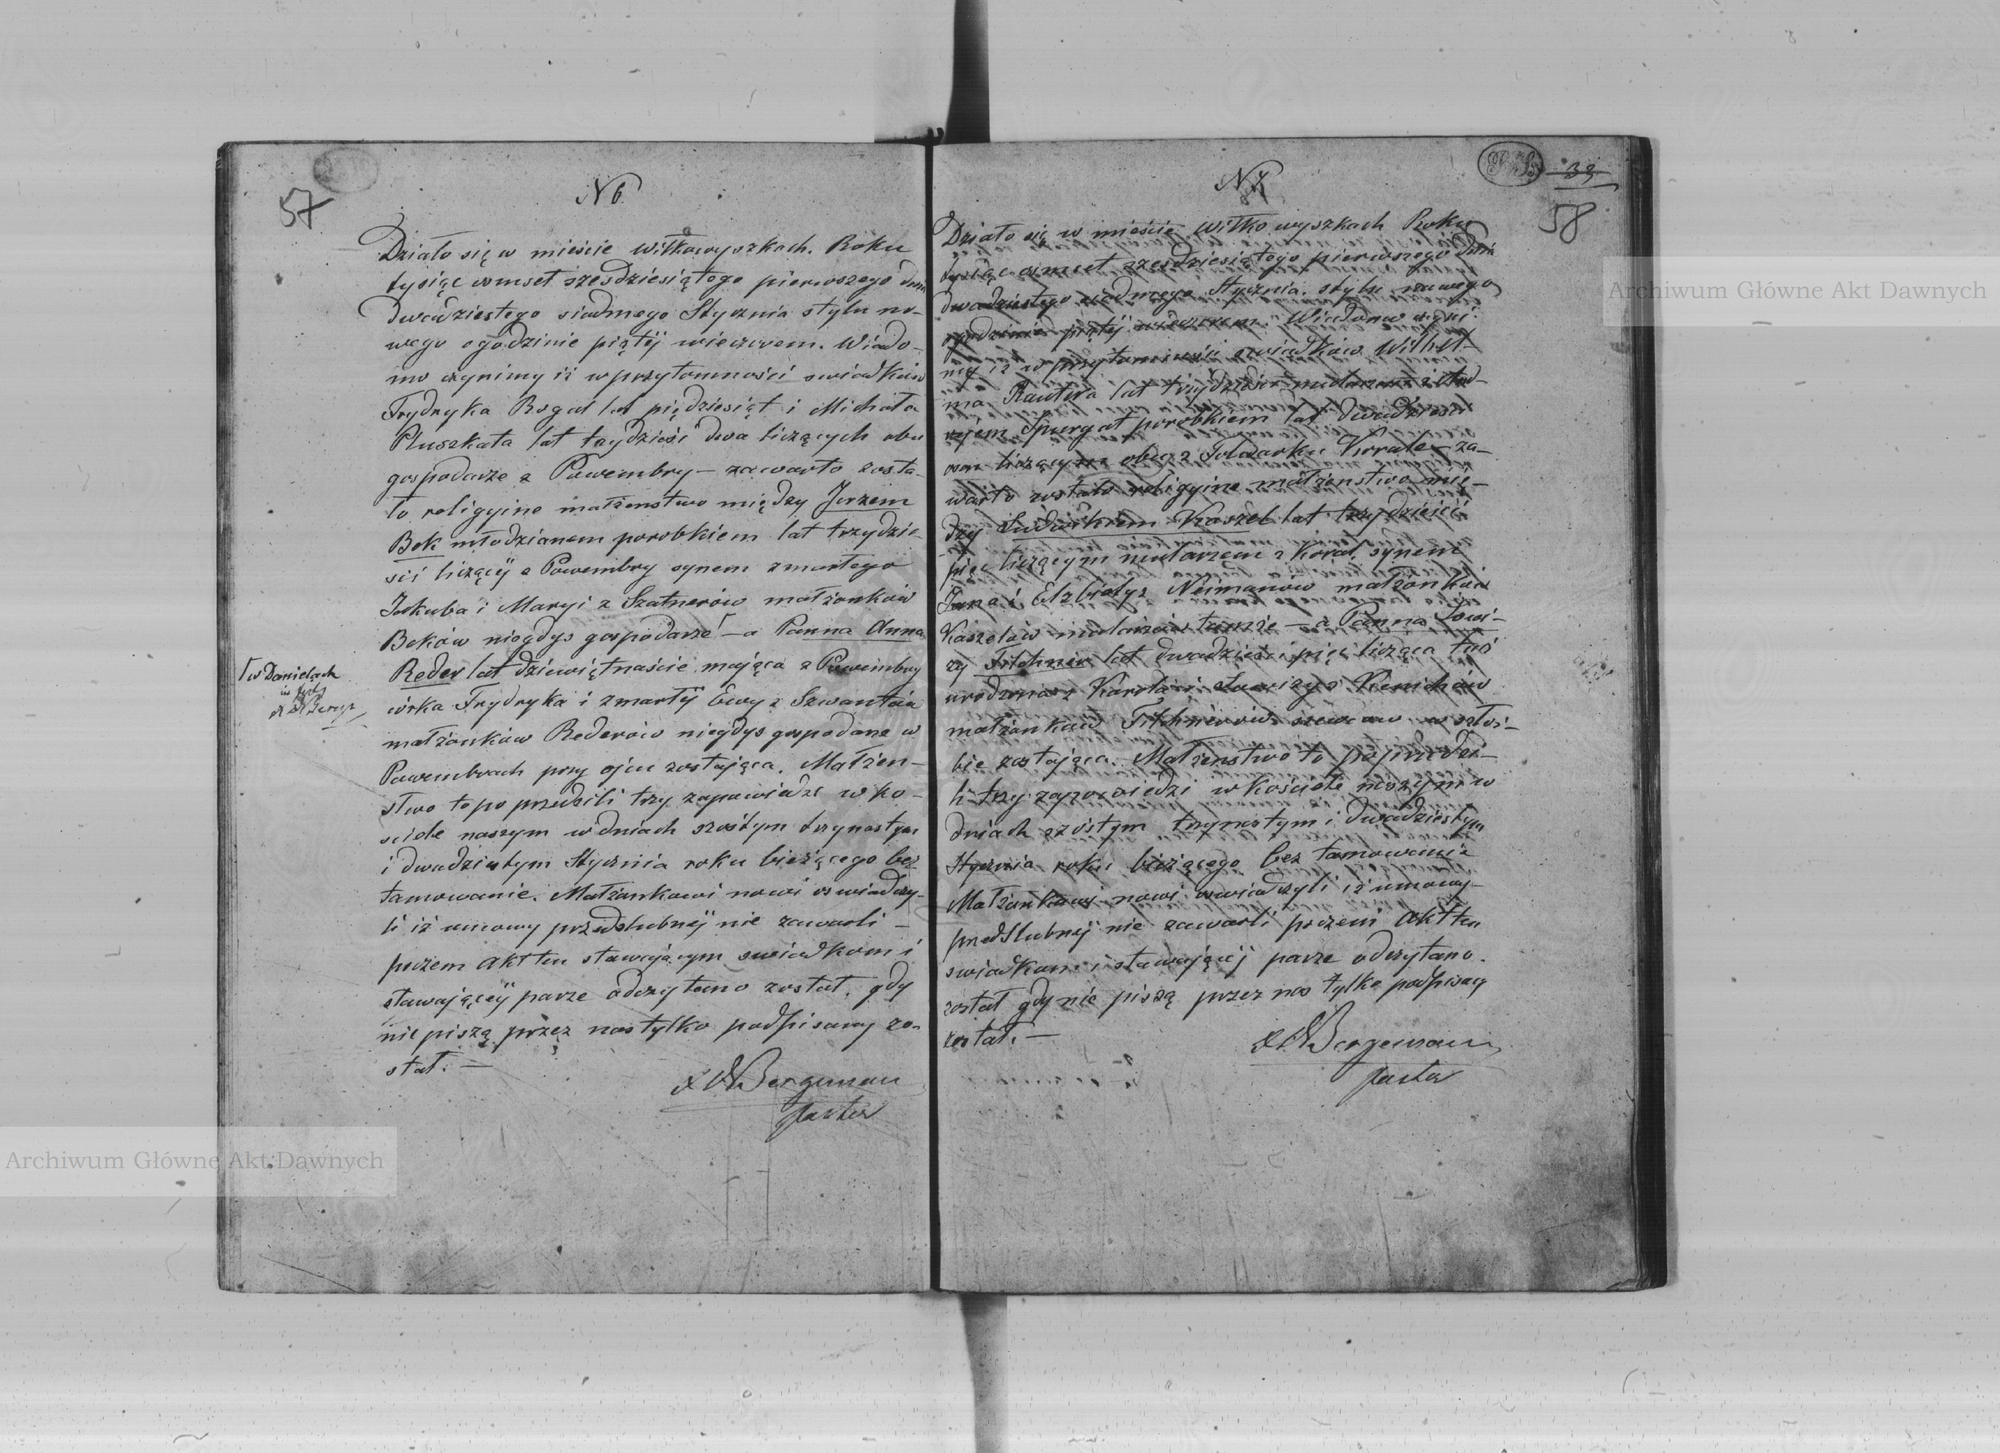 57
N 6
Działo się w mieście Wiłkowyszkach. Roku
tysiąc osmset szesdziesiątego pierwszego dnia
dwudziestego siodmego Stycznia stylu no-
wego o godzinie piątÿ wieczorem. Wiado-
mo czynimy iż w przytomności swiadków
Frydryka Rogat lat piędziesiąt i Michała
Pluszkata lat trzydzieści dwa liczących obu
gospodarze z Powembry — zawarto zosta-
ło religyine małżenstwo między Jerzem
Bek młodzianem porobkiem lat trzydzie-
ści liczącÿ z Powembry synem zmarłego
Jakuba i Maryi z Szatnerów małżonków
Beków niegdys gospodarze — a Panna Anna
Reder lat dziewiętnaście mająca z Powembry
córka Frydryka i zmartÿ Ewy z Szwantów
małżonków Rederów niegdys gospodarze w
Powembrach przy ojcu zostająca. Małżen-
stwo to poprzedzili trzy zapowiedzi w ko-
sciele naszym w dniach szostym trzynastym
i dwudziestym Stycznia roku bieżącego bez
tamowanie. Małżonkowi nowi oswiadczy-
li iż umowy przedslubnÿ nie zawarli —
poczem Akt ten stawającym swiadkom i
stawającÿ parze odczytano został, gdy
nie piszą przez nas tylko podpisany zo-
stał. —
Bergeman
Pastor
w Danielach
N 7
33
58
Działo się w mieście Wiłkowyszkach Roku
tysiąc osmset szesdziesiątego pierwszego dnia
dwudziestego siodmego Stycznia stylu nowego
o godzinie piątÿ wieczorem. Wiadomo czyni-
my iż w przytomności swiadków Wilhel-
ma Rautera lat trzydzieści mularzem i And-
rejem Spurgat porobkiem lat dwadziescia
osm liczącym obu z Folwarku Korale — za-
warto zostało religyine małżenstwo mię-
dzy Ludwikiem Kaszel lat trzydzieści
pięc liczącym mularzem z Koral, synem
Jana i Elzbiety z Neimanów małżonków
Kaszelów — a Panna Lowi-
zy lat dwadzieścia pięc licząca
urodzona z Karola i Lowizy z
małżonków w służ-
bie zostająca. Małżenstwo to poprzedzi-
li trzy zapowiedzi w kościele naszym w
dniach szóstym trzynastym i dwudziestym
Stycznia roku bieżącego bez tamowanie
Małżonkowi nowi oswiadczyli iż umowy
przedslubnÿ nie zawarli poczem Akt ten
swiadkom i stawającÿ parze odczytano.
został gdy nie piszą przez nas tylko podpisany
został. —
Bergeman
Pastor
Archiwum Główne Akt Dawnych
Archiwum Główne Akt Dawnych